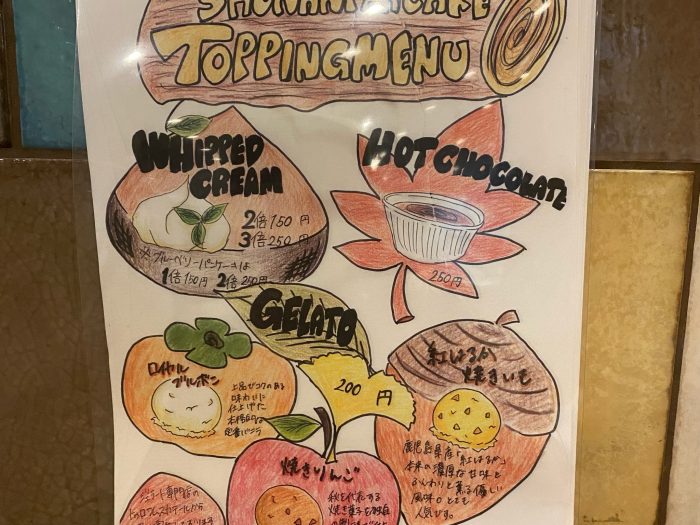 TOPPINGMENU
WHIPPED
CREAM
2倍150円
3倍250円
※ブルーベリーパンケーキは
1倍150円 2倍250円
HOT CHOCOLATE
250円
GELATO
200円
ロイヤル
ブルボン
上品でコクのある
味わいに
仕上げた
本格的な
定番バニラ
紅はるか
焼きいも
鹿児島県産「紅はるか」
本来の濃厚な甘味と
ふんわりと薫る優しい
風味がとても
人気です。
焼きりんご
秋を代表する
焼き菓子を独自
ジェラート専門店の